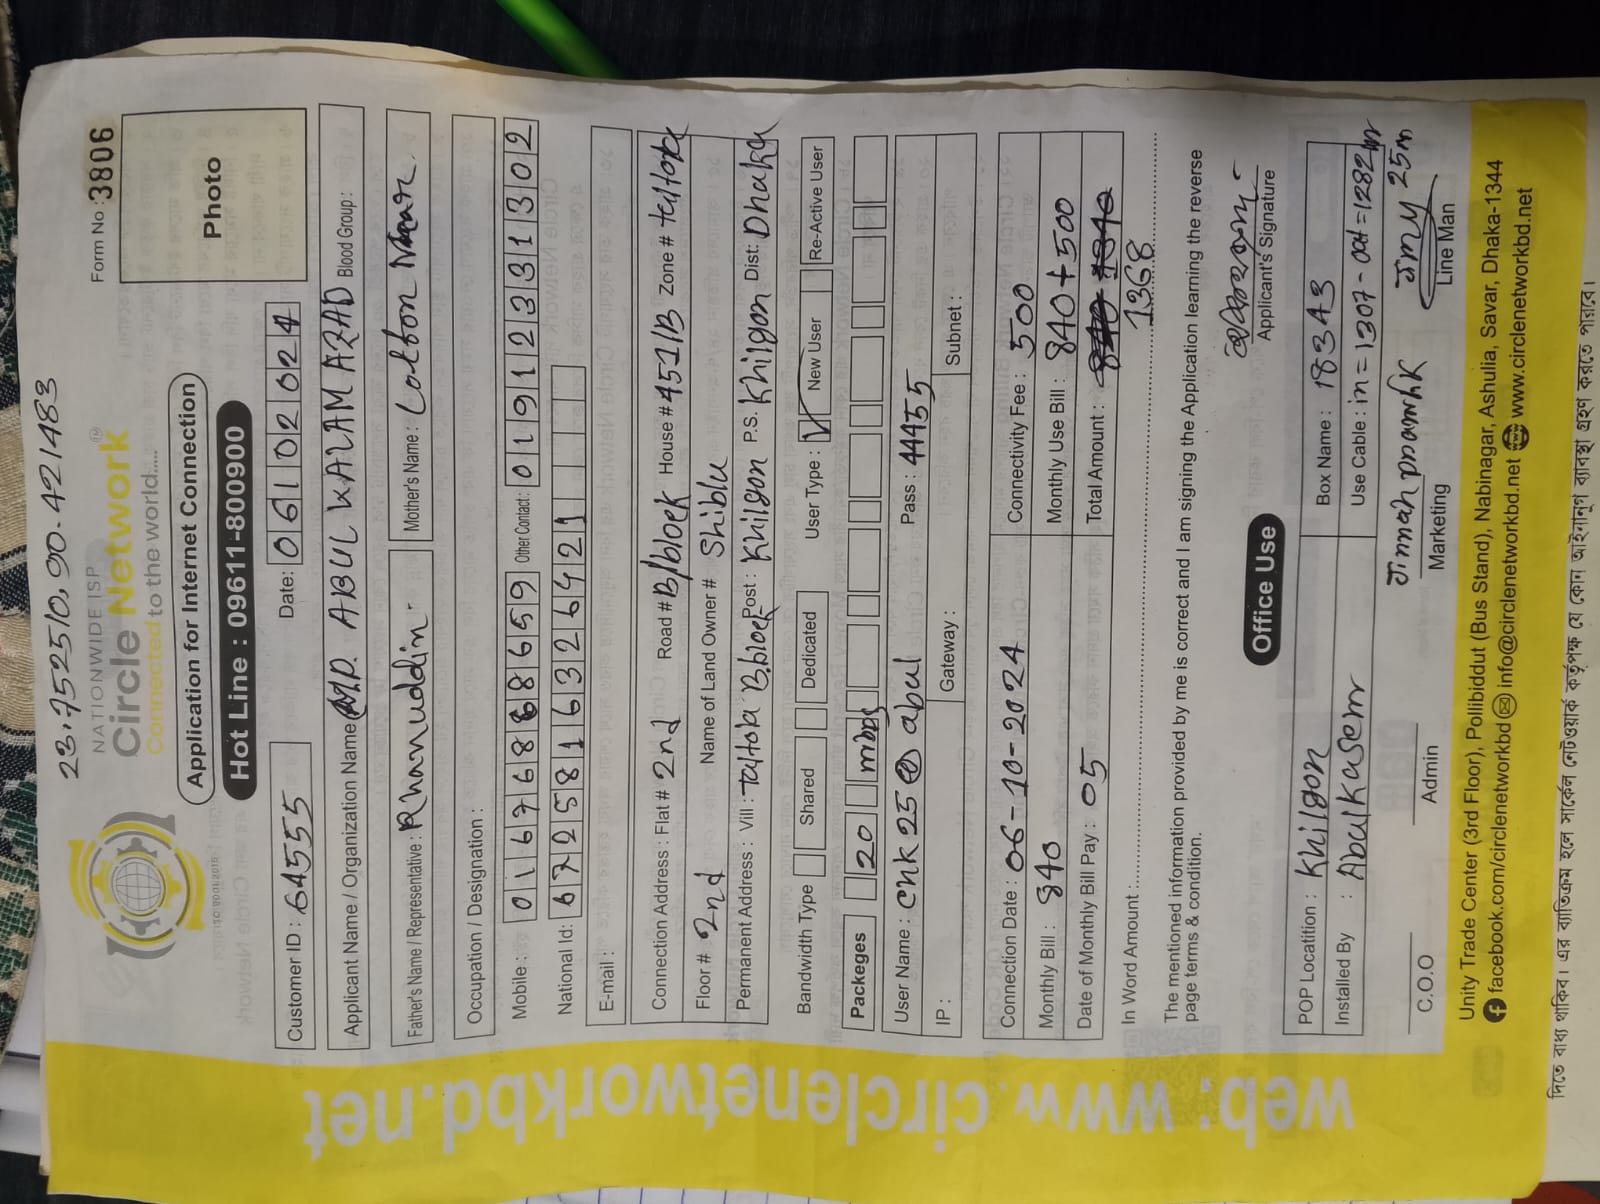 23.752510, 90.421483
NATIONWIDE ISP
Form No : 3806
Circle Network
Connected to the world.....
Application for Internet Connection
Hot Line : 09611-800900
Photo
Customer ID : 64555 Date: 06102024
Applicant Name / Organization Name MD. ABUL KALAM AZAD Blood Group :
Father's Name / Representative : Khanuddin Mother's Name :
Occupation / Designation :
Mobile : 01676886659 Other Contact: 01912331302
National Id: 6725816326421
E-mail :
Connection Address : Flat # 2nd Road # B/block House # 451/B Zone # tiltota
Floor # 2nd Name of Land Owner # Shiblu
Permanent Address : Vill : B.block Post : Khilgon P.S. Khilgon Dist: Dhaka
Bandwidth Type Shared Dedicated User Type : New User Re-Active User
Packeges 20 mbps
User Name : CHK25@abul Pass : 44455
IP : Gateway : Subnet :
Connection Date : 06-10-2024 Connectivity Fee : 500
Monthly Bill : 840 Monthly Use Bill : 840+500
Date of Monthly Bill Pay : 05 Total Amount :
In Word Amount : 1368
The mentioned information provided by me is correct and I am signing the Application learning the reverse
page terms & condition.
Applicant's Signature
Office Use
POP Locatition : Khilgon Box Name : 18343
Installed By : Abulkasem Use Cable : in = 1307 - out = 1282
25m
C.O.O Admin Marketing Line Man
Unity Trade Center (3rd Floor), Pollibiddut (Bus Stand), Nabinagar, Ashulia, Savar, Dhaka-1344
facebook.com/circlenetworkbd info@circlenetworkbd.net www.circlenetworkbd.net
দিতে বাধ্য থাকিব। এর ব্যতিক্রম হলে সার্কেল নেটওয়ার্ক কর্তৃপক্ষ যে কোন আইনানুগ ব্যবস্থা গ্রহণ করতে পারবে।
web: www.circlenetworkbd.net